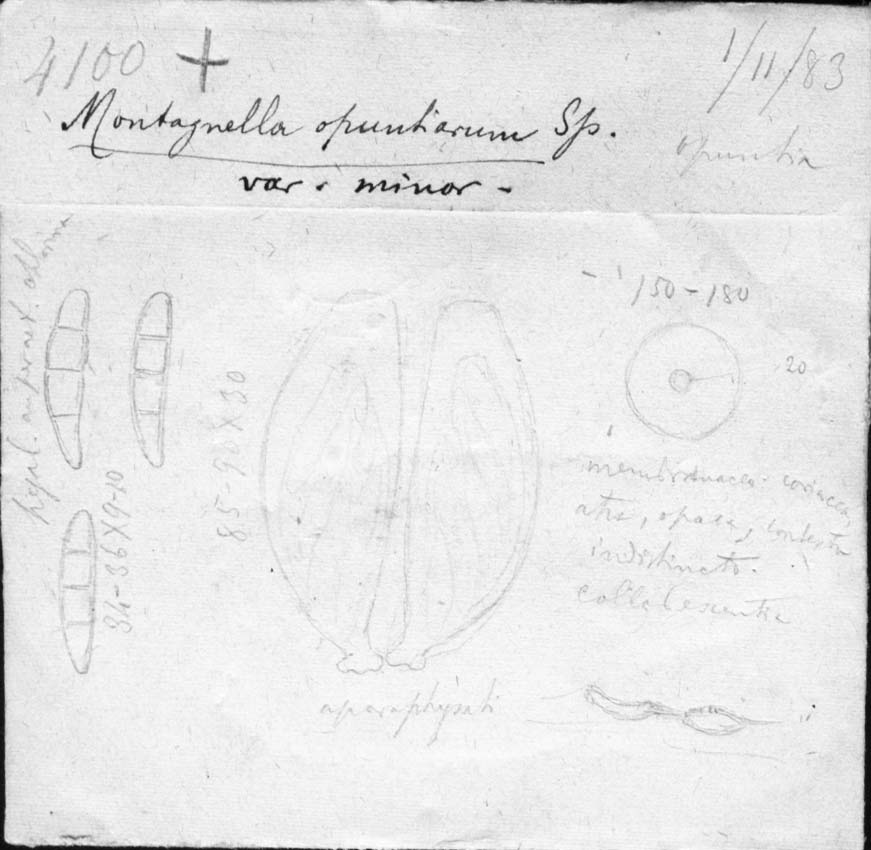 4100 +
1/11/83
Montagnella opuntiarum Sp.
opuntia
var. minor -
hyal.
34-36X9-10
85-90X30
150-180
20
membranacea coriacea,
atra, opaca, contextu
indistincto.
collabescentia
aparaphysati